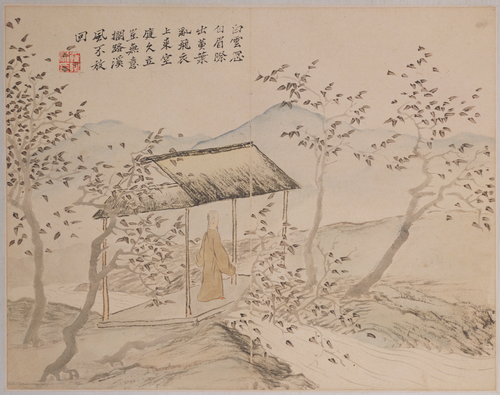 白雲忽
眉際
出黃葉
亂飛衣
上來空
庭久立
豈無意
攔路溪
風不放
回